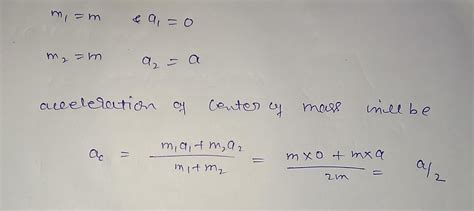 m₁ = m & a₁ = 0
m₂ = m a₂ = a
acceleration of center of mass will be
a_c = (m₁a₁ + m₂a₂)/(m₁ + m₂) = (m×0 + m×a)/2m = a/2